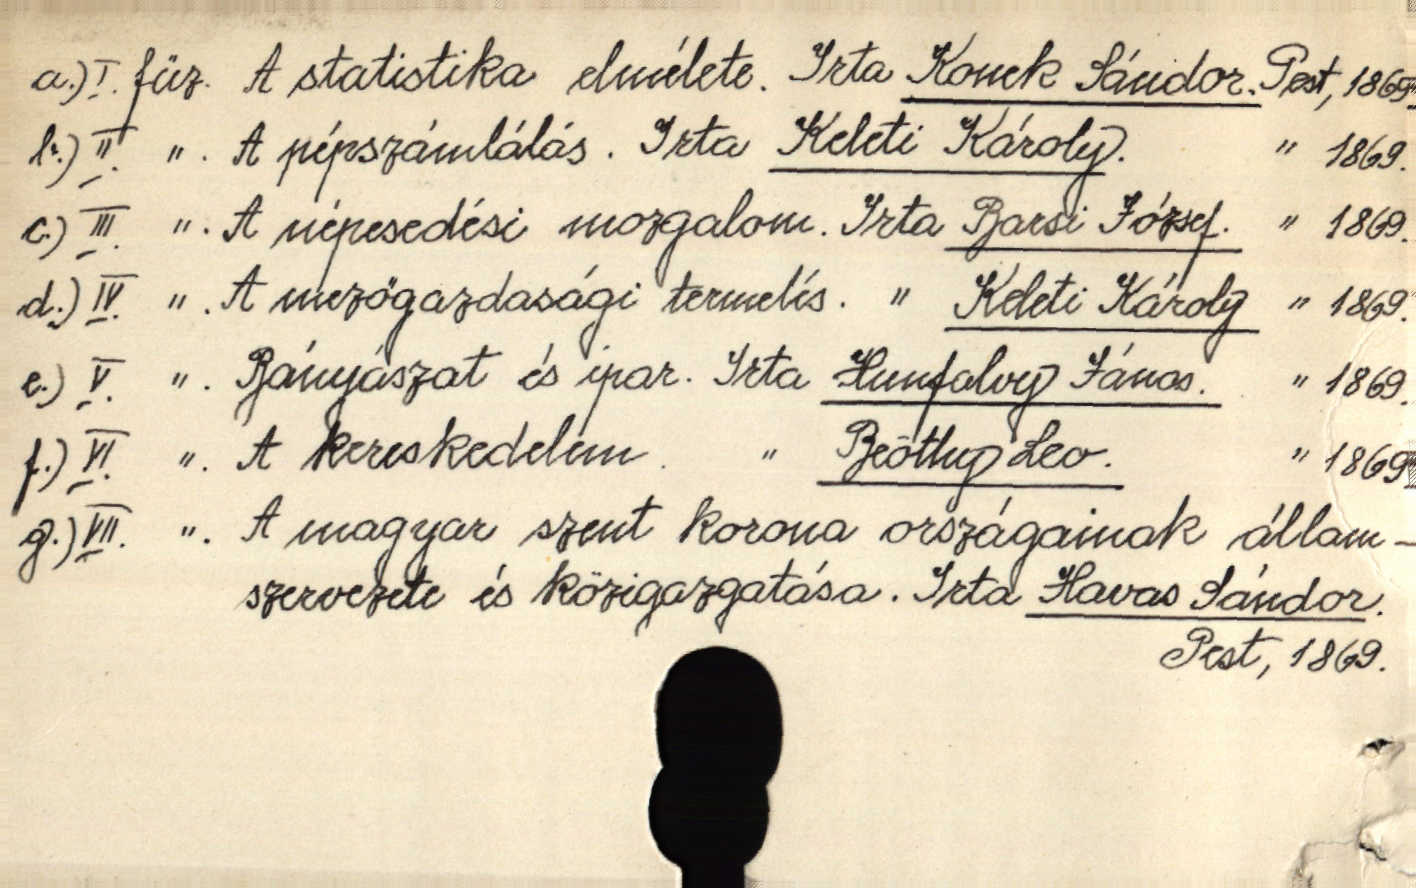 a.) I. füz. A statistika elmélete. Irta Konek Sándor. Pest, 1869
b.) II. ". A népszámlálás. Irta Keleti Károly. " 1869.
c.) III. ". A népesedési mozgalom. Irta Barsi József. " 1869.
d.) IV. ". A mezőgazdasági termelés. " Keleti Károly " 1869.
e.) V. ". Bányászat és ipar. Irta Hunfalvy János. " 1869.
f.) VI. ". A kereskedelem. " Beöthy Leo. " 1869
g.) VII. ". A magyar szent korona országainak állam-
szervezete és közigazgatása. Irta Havas Sándor.
Pest, 1869.